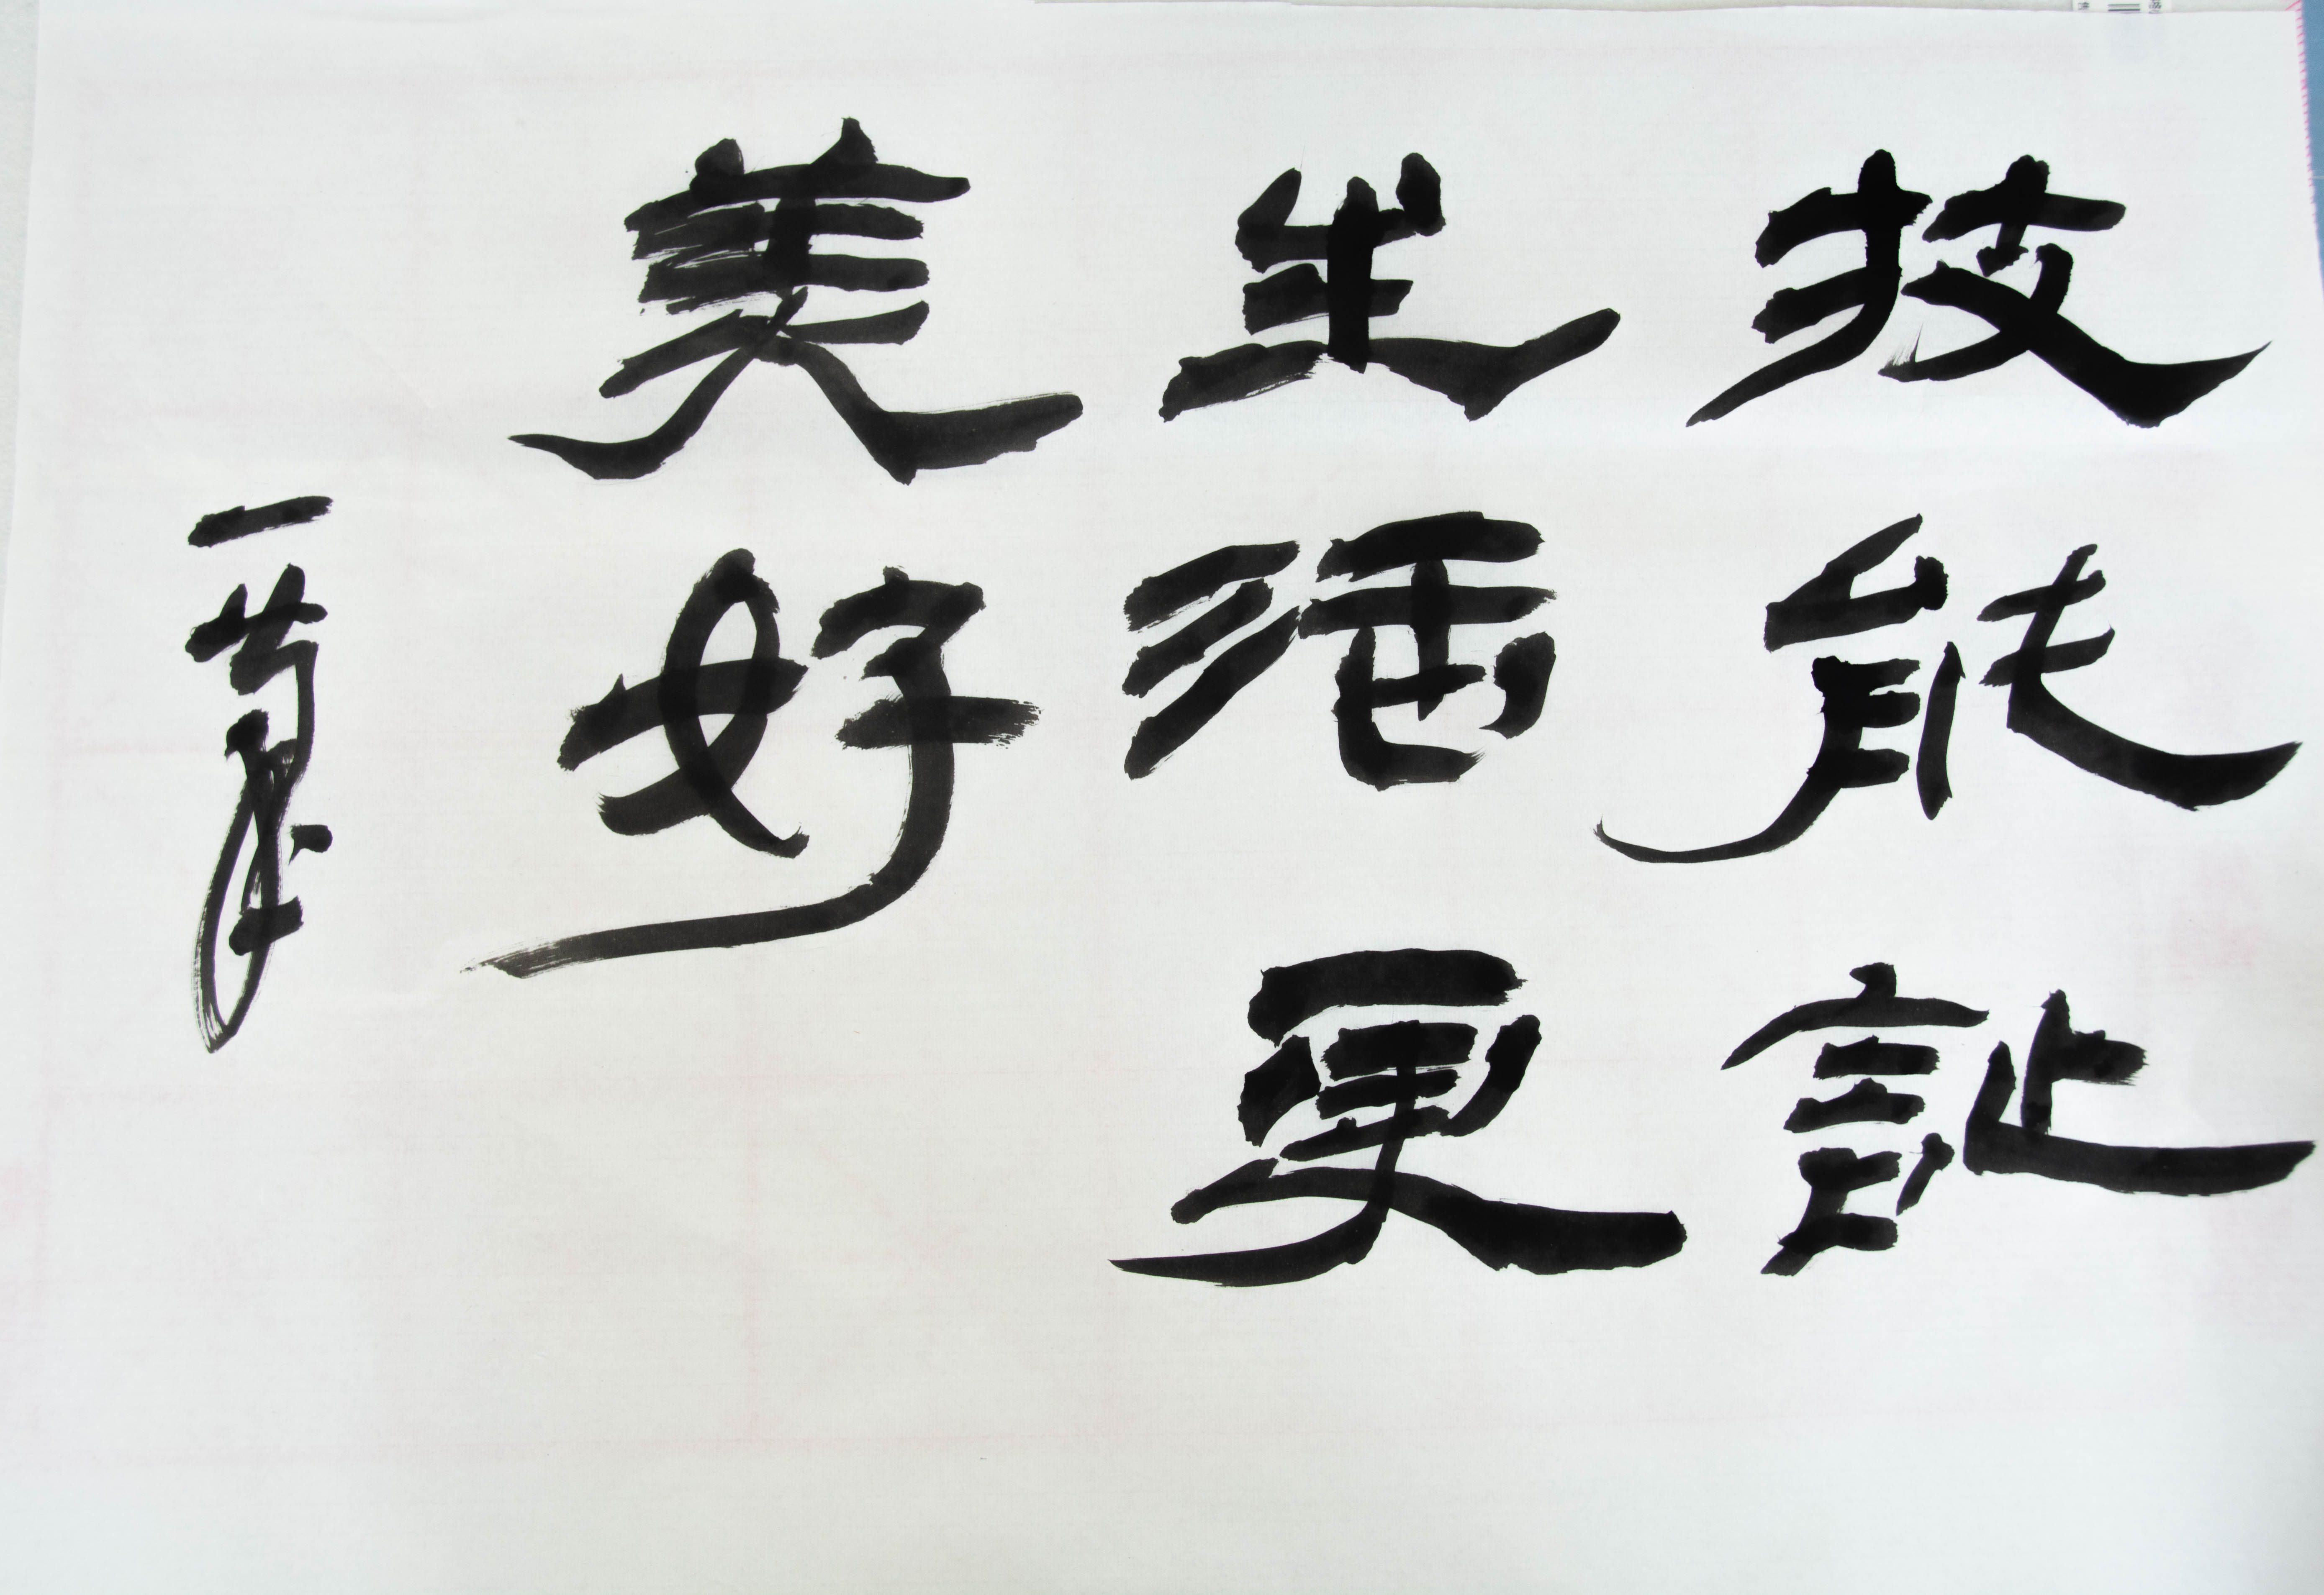 技能让
生活更
美好
一